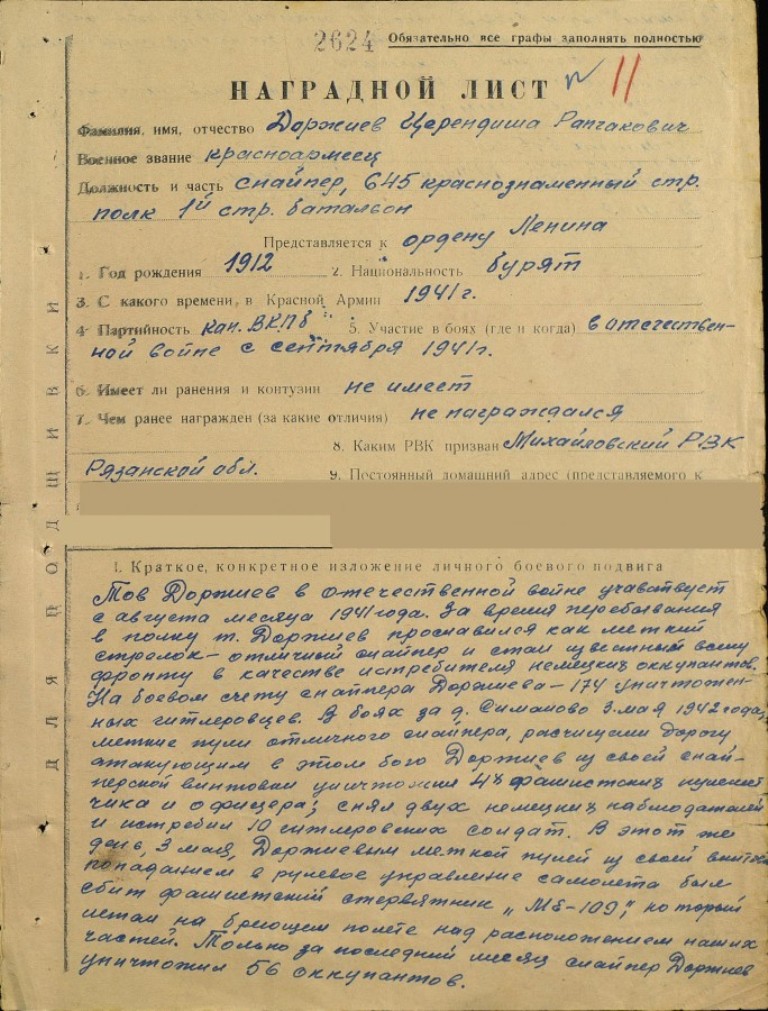 2624 Обязательно все графы заполнять полностью
НАГРАДНОЙ ЛИСТ № 11
Фамилия, имя, отчество Доржиев Церендиша Рапчакович
Военное звание красноармеец
Должность и часть снайпер, 645 краснознаменный стр.
полк 1й стр. батальон
Представляется к ордену Ленина
1. Год рождения 1912 2. Национальность бурят
3. С какого времени, в Красной Армии 1941 г.
4. Партийность кан. ВКПб 5. Участие в боях (где и когда) в отечествен-
ной войне с сентября 1941 г.
6. Имеет ли ранения и контузии не имеет
7. Чем ранее награжден (за какие отличия) не награждался
8. Каким РВК призван Михайловский РВК
Рязанской обл.
9. Постоянный домашний адрес (представляемого к
ДЛЯ ПОДШИВКИ
I. Краткое, конкретное изложение личного боевого подвига
Тов Доржиев в отечественной войне учавствует
с августа месяца 1941 года. За время перебывания
в полку т. Доржиев прославился как меткий
стрелок - отличный снайпер и стал известный всему
фронту в качестве истребителя немецких оккупантов.
На боевом счету снайпера Доржиева - 174 уничтожен-
ных гитлеровцев. В боях за д. Симаново 3 мая 1942 года,
меткие пули отличного снайпера, расчищали дорогу
атакующим в этом бою Доржиев из своей снай-
перской винтовки уничтожил 4х фашистских
чика и офицера; снял двух немецких наблюдателей
и истребил 10 гитлеровских солдат. В этот же
день, 3 мая, Доржиевым меткой пулей из своей
попаданием в рулевое управление самолета был
сбит фашистский стервятник „МЕ-109", который
летал на бреющем полете над расположением наших
частей. Только за последний месяц снайпер Доржиев
уничтожил 56 оккупантов.